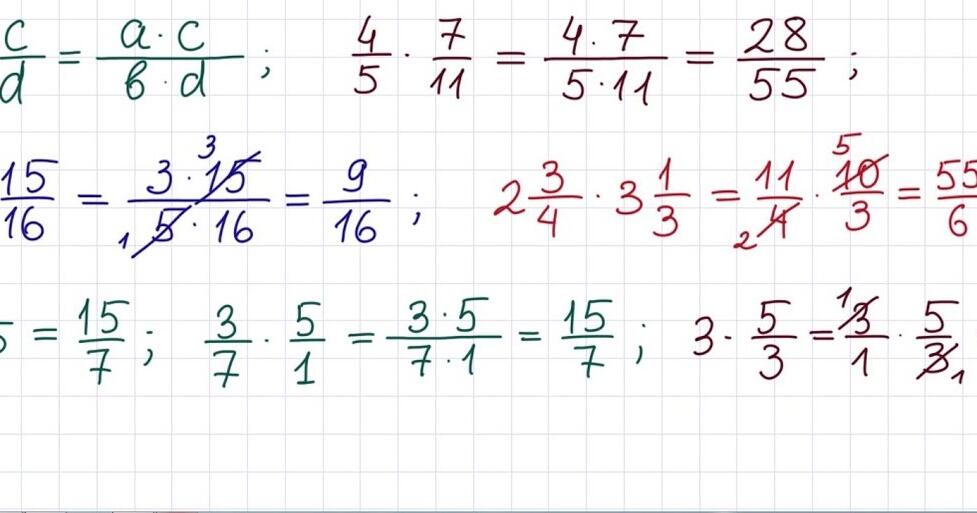 c/d = a · c / в · d ; 4/5 · 7/11 = 4 · 7 / 5 · 11 = 28/55 ;
15/16 = 3 · 15 3 / 1 5 · 16 = 9/16 ; 2 3/4 · 3 1/3 = 11 / 2 4 · 5 10 / 3 = 55/6
5 = 15/7 ; 3/7 · 5/1 = 3 · 5 / 7 · 1 = 15/7 ; 3 · 5/3 = 1 3 / 1 · 5 / 3 1